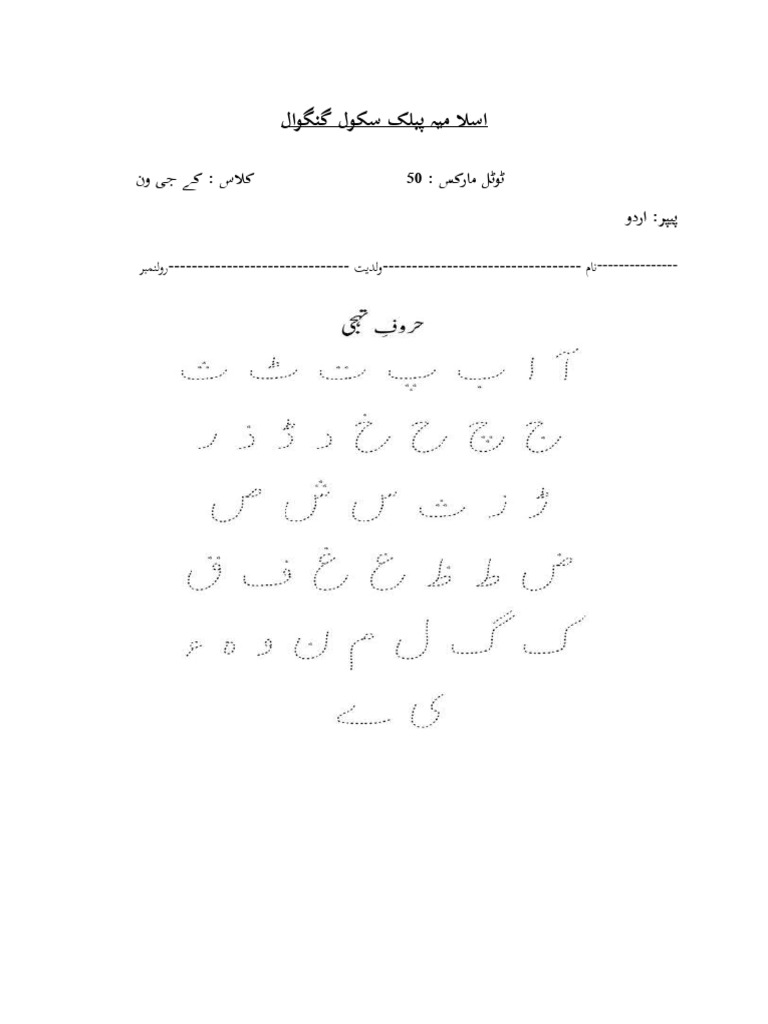 اسلا میہ پبلک سکول گنگوال
ٹوٹل مارکس : 50 کلاس : کے جی ون
پیپر: اردو
---------------نام ----------------------------------ولدیت -------------------------------رولنمبر
حروفِ تہجی
آ ا ب پ ت ٹ ث
ج چ ح خ د ڈ ذ ر
ڑ ز ث س ش ص
ض ط ظ ع غ ف ق
ک گ ل م ن و ہ ء
ی ے